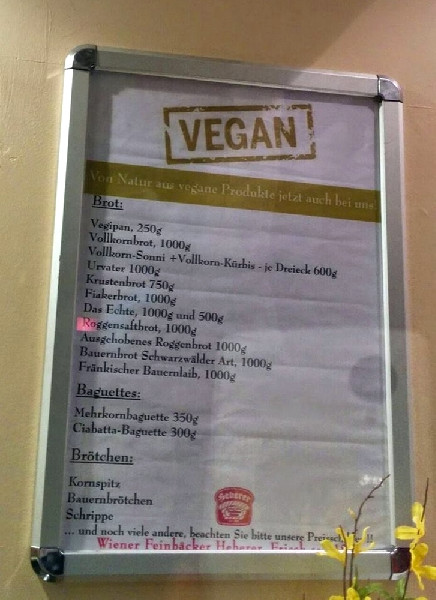 VEGAN
Von Natur aus vegane Produkte jetzt auch bei uns!
Brot:
Vegipan, 250g
Vollkornbrot, 1000g
Vollkorn-Sonni +Vollkorn-Kürbis - je Dreieck 600g
Urvater 1000g
Krustenbrot 750g
Fiakerbrot, 1000g
Das Echte, 1000g und 500g
Roggensaftbrot, 1000g
Ausgehobenes Roggenbrot 1000g
Bauernbrot Schwarzwälder Art, 1000g
Fränkischer Bauernlaib, 1000g
Baguettes:
Mehrkornbaguette 350g
Ciabatta-Baguette 300g
Brötchen:
Kornspitz
Bauernbrötchen
Schrippe
Heberer
... und noch viele andere, beachten Sie bitte unsere !!
Wiener Feinbäcker Heberer.